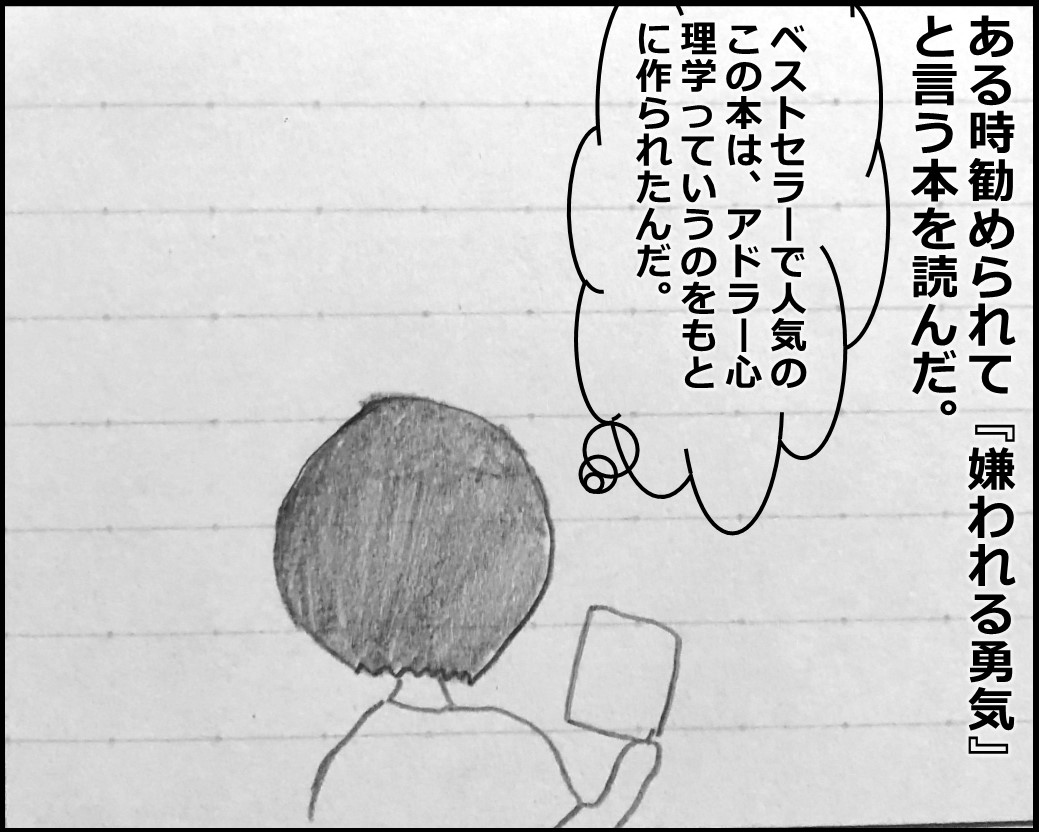 ある時勧められて『嫌われる勇気』
と言う本を読んだ。
ベストセラーで人気の
この本は、アドラー心
理学っていうのをもと
に作られたんだ。